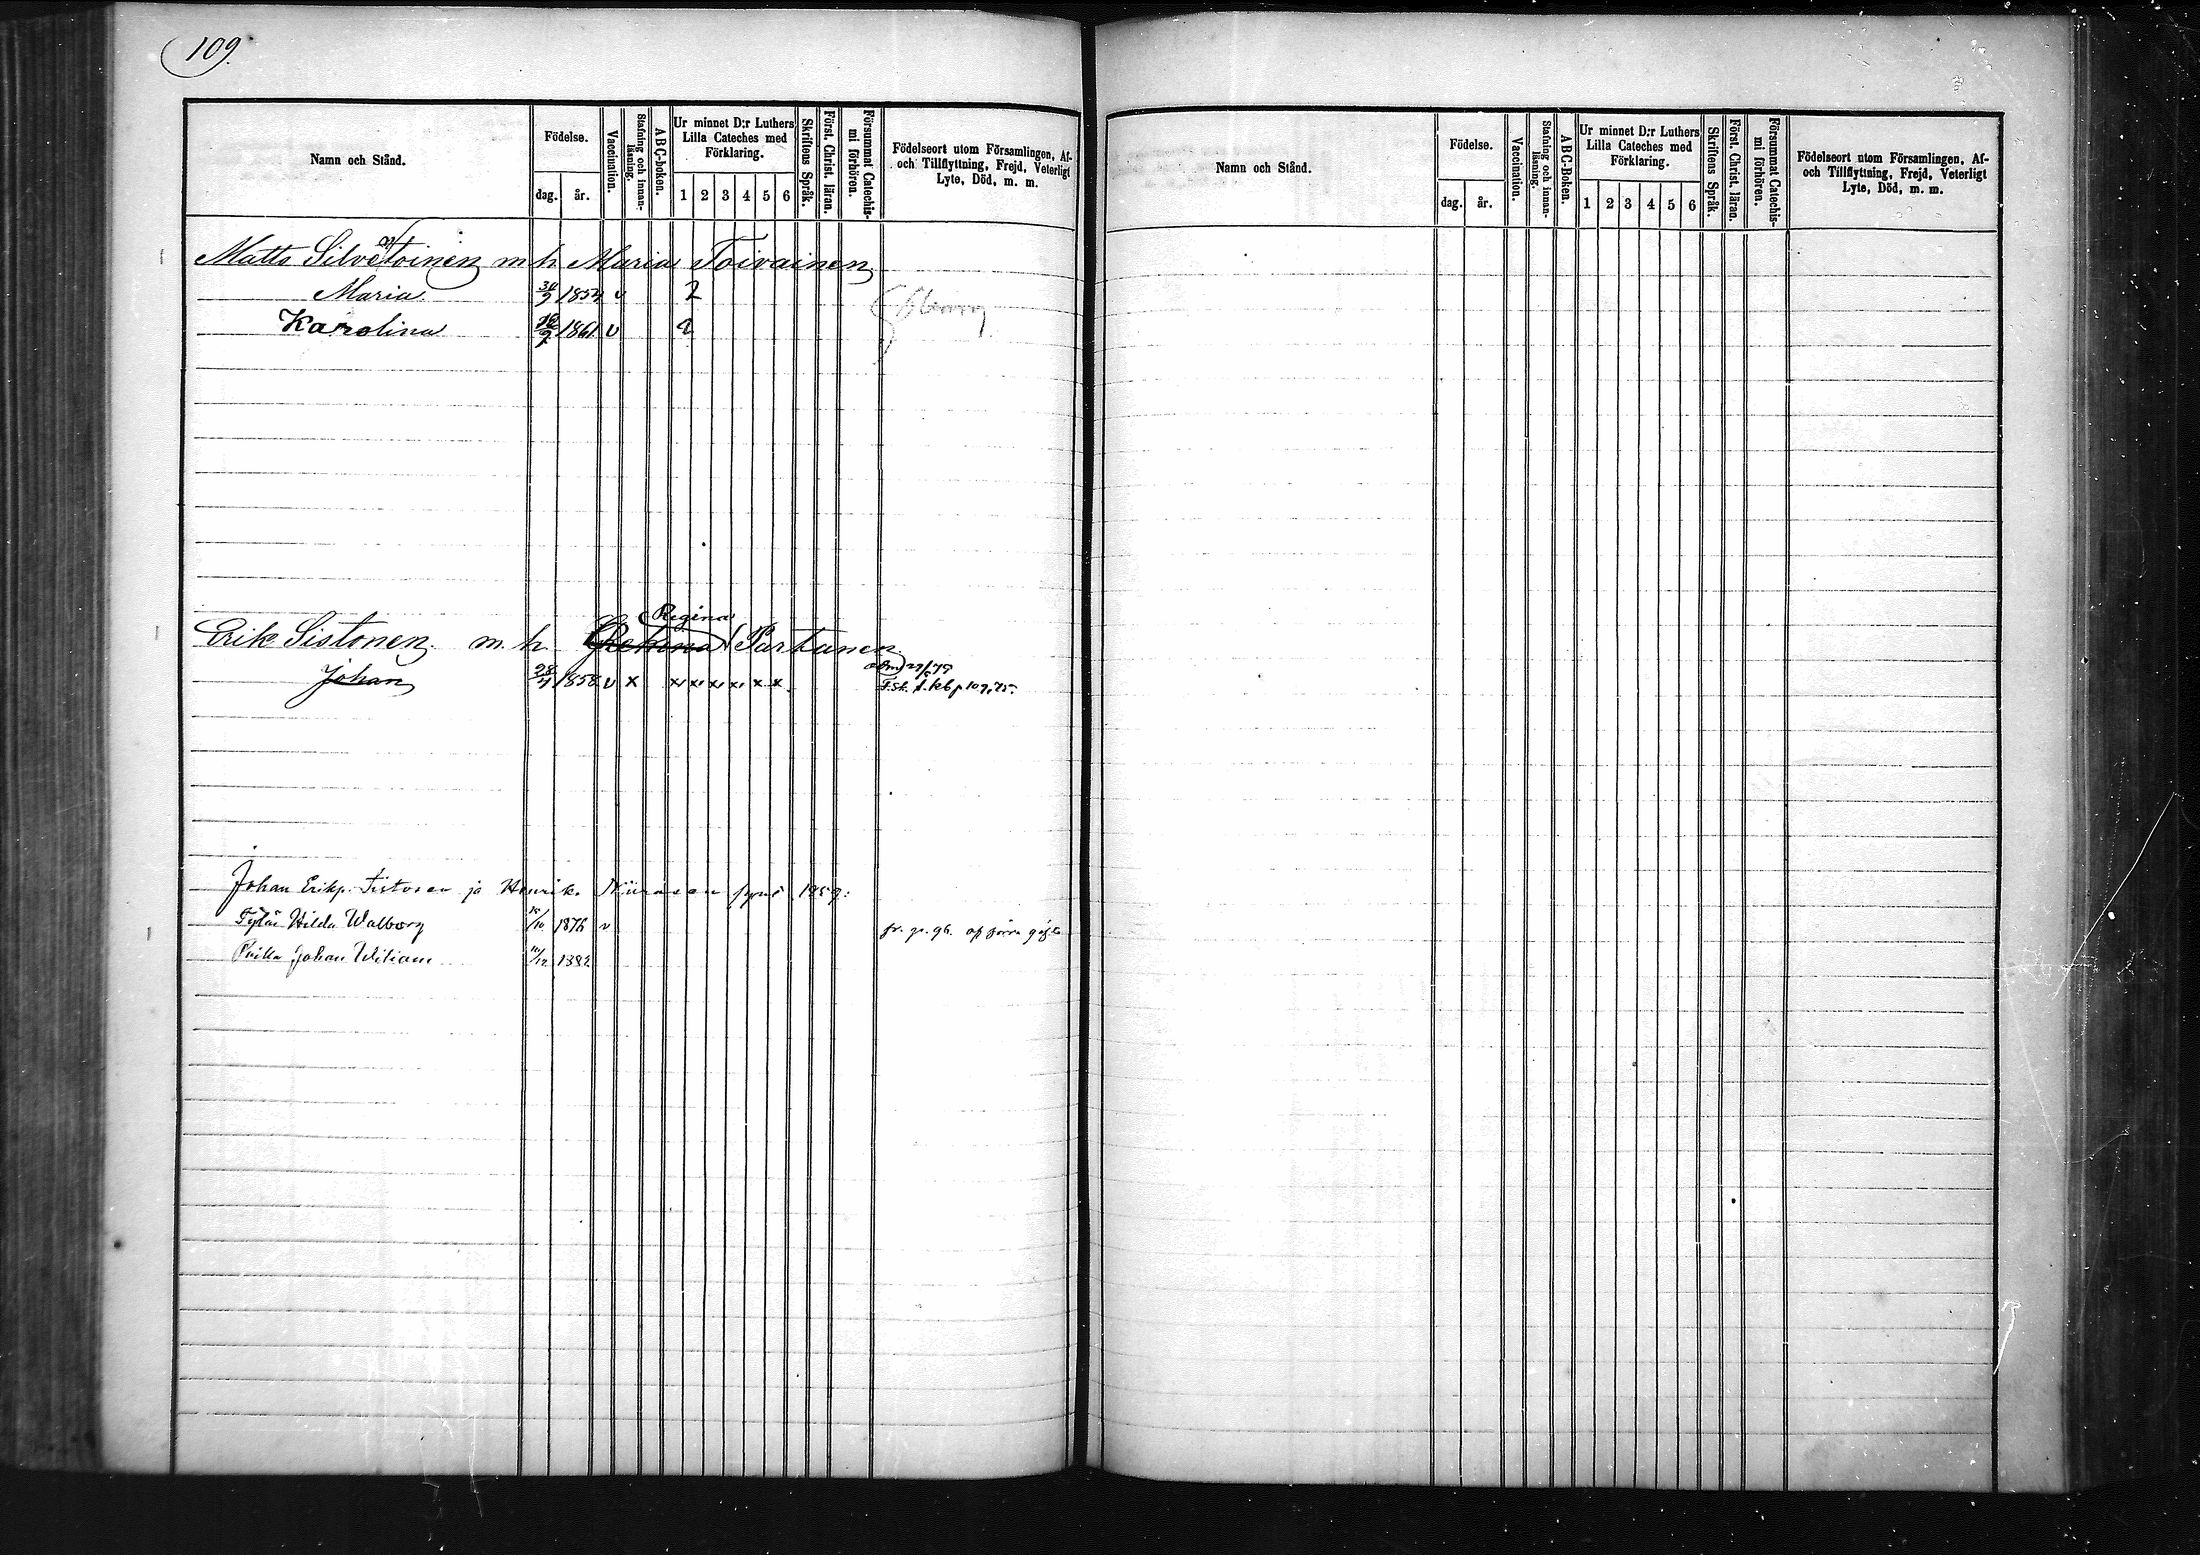 109.
Namn och Stånd.
Födelse.
dag.
år.
Vaccination.
Stafning och innan-läsning.
ABC-boken.
Ur minnet D:r Luthers
Lilla Cateches med
Förklaring.
1 2 3 4 5 6
Skriftens Språk.
Först. Christ. läran.
Försummat Catechis-mi förhören.
Födelseort utom Församlingen, Af-
och Tillflyttning, Frejd, Veterligt
Lyte, Död, m. m.
Matts m h Maria Toivainen
Maria 1854 v 2
Karolina 1861 v
Regina
Erik Sistonen m. h. Partanen
Johan 28/7 1858 v x x x x x x x
Johan Erikp. Sistonen ja Henrika
Hilda Walborg 1876 v
Poika Johan Wiliam 1882
Namn och Stånd.
Födelse.
dag.
år.
Vaccination.
Stafning och innan-läsning.
ABC-Boken.
Ur minnet D:r Luthers
Lilla Cateches med
Förklaring.
1 2 3 4 5 6
Skriftens Språk.
Först. Christ. läran.
Försummat Catechis-mi förhören.
Födelseort utom Församlingen, Af-
och Tillflyttning, Frejd, Veterligt
Lyte, Död, m. m.